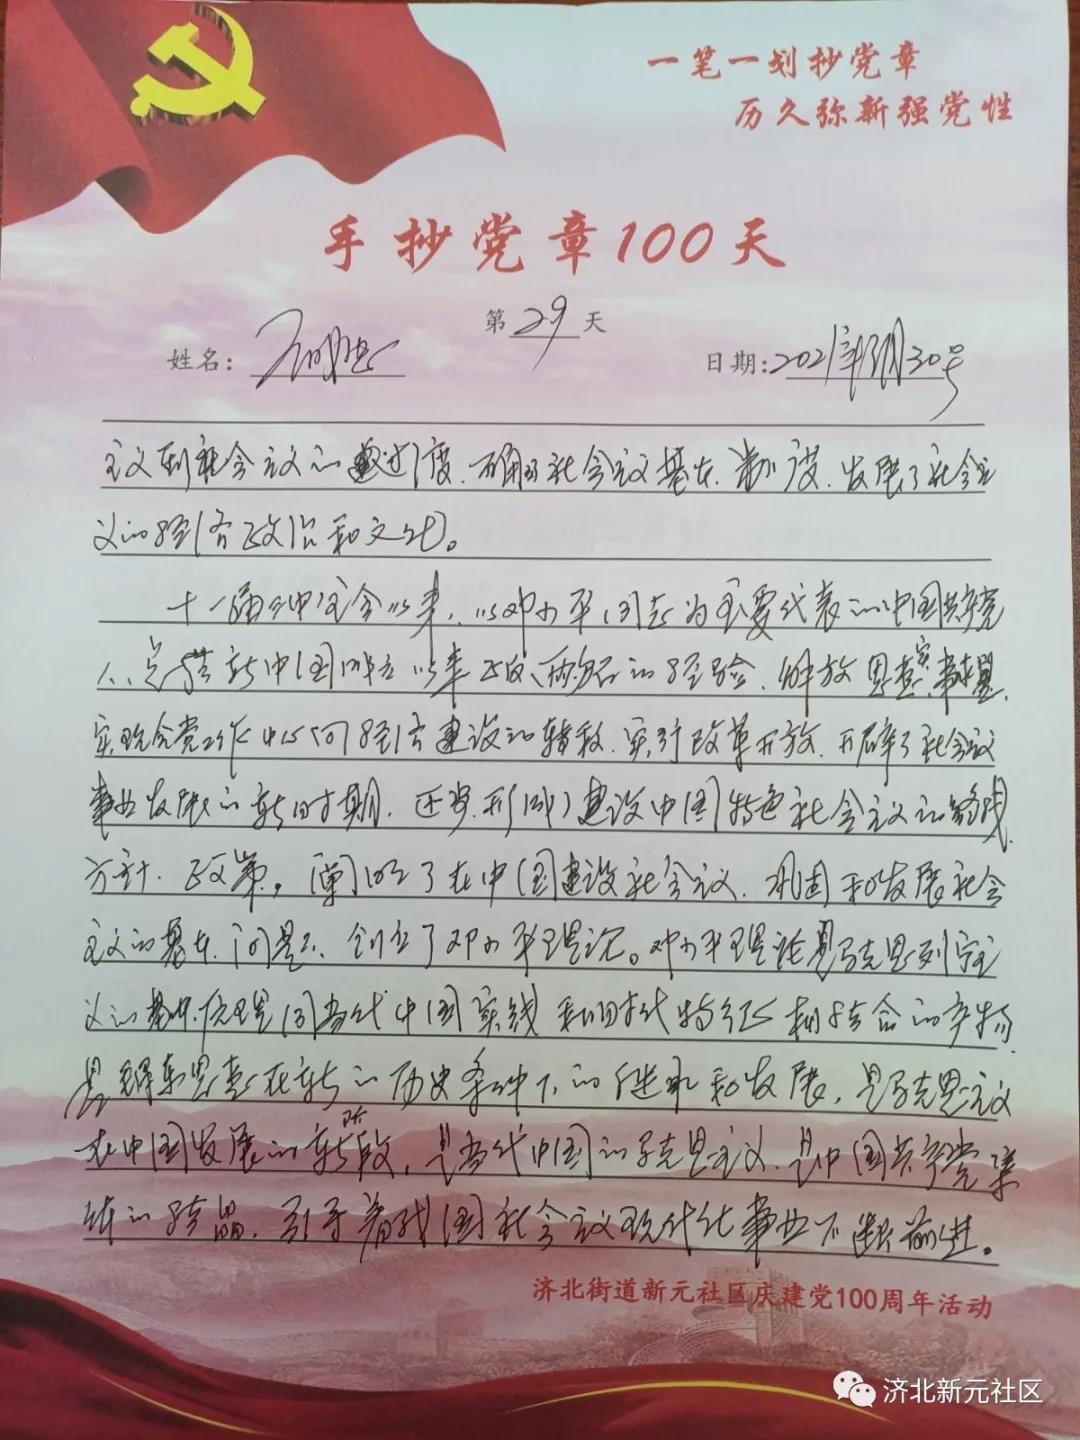 一笔一划抄党章
历久弥新强党性
手抄党章100天
第29天
姓名：
日期：2021年3月30号
主义到社会主义的过渡，确了社会主义基本制度，发展了社会主
义的经济政治和文化。
十一届三中全会以来，以邓小平同志为主要代表的中国共产党
人，总结新中国成立以来正反两方面的经验，解放思想，实事求是，
实现全党工作中心向经济建设的转移，实行改革开放，开辟了社会主义
事业发展的新时期，逐步形成了建设中国特色社会主义的路线
方针、政策，阐明了在中国建设社会主义、巩固和发展社会
主义的基本问题，创立了邓小平理论。邓小平理论是马克思列宁主
义的基本原理同当代中国实践和时代特征相结合的产物，
是毛泽东思想在新的历史条件下的继承和发展，是马克思主义
在中国发展的新阶段，是当代中国的马克思主义，是中国共产党集
体的结晶，引导着我国社会主义现代化事业不断前进。
济北街道新元社区庆建党100周年活动
济北新元社区